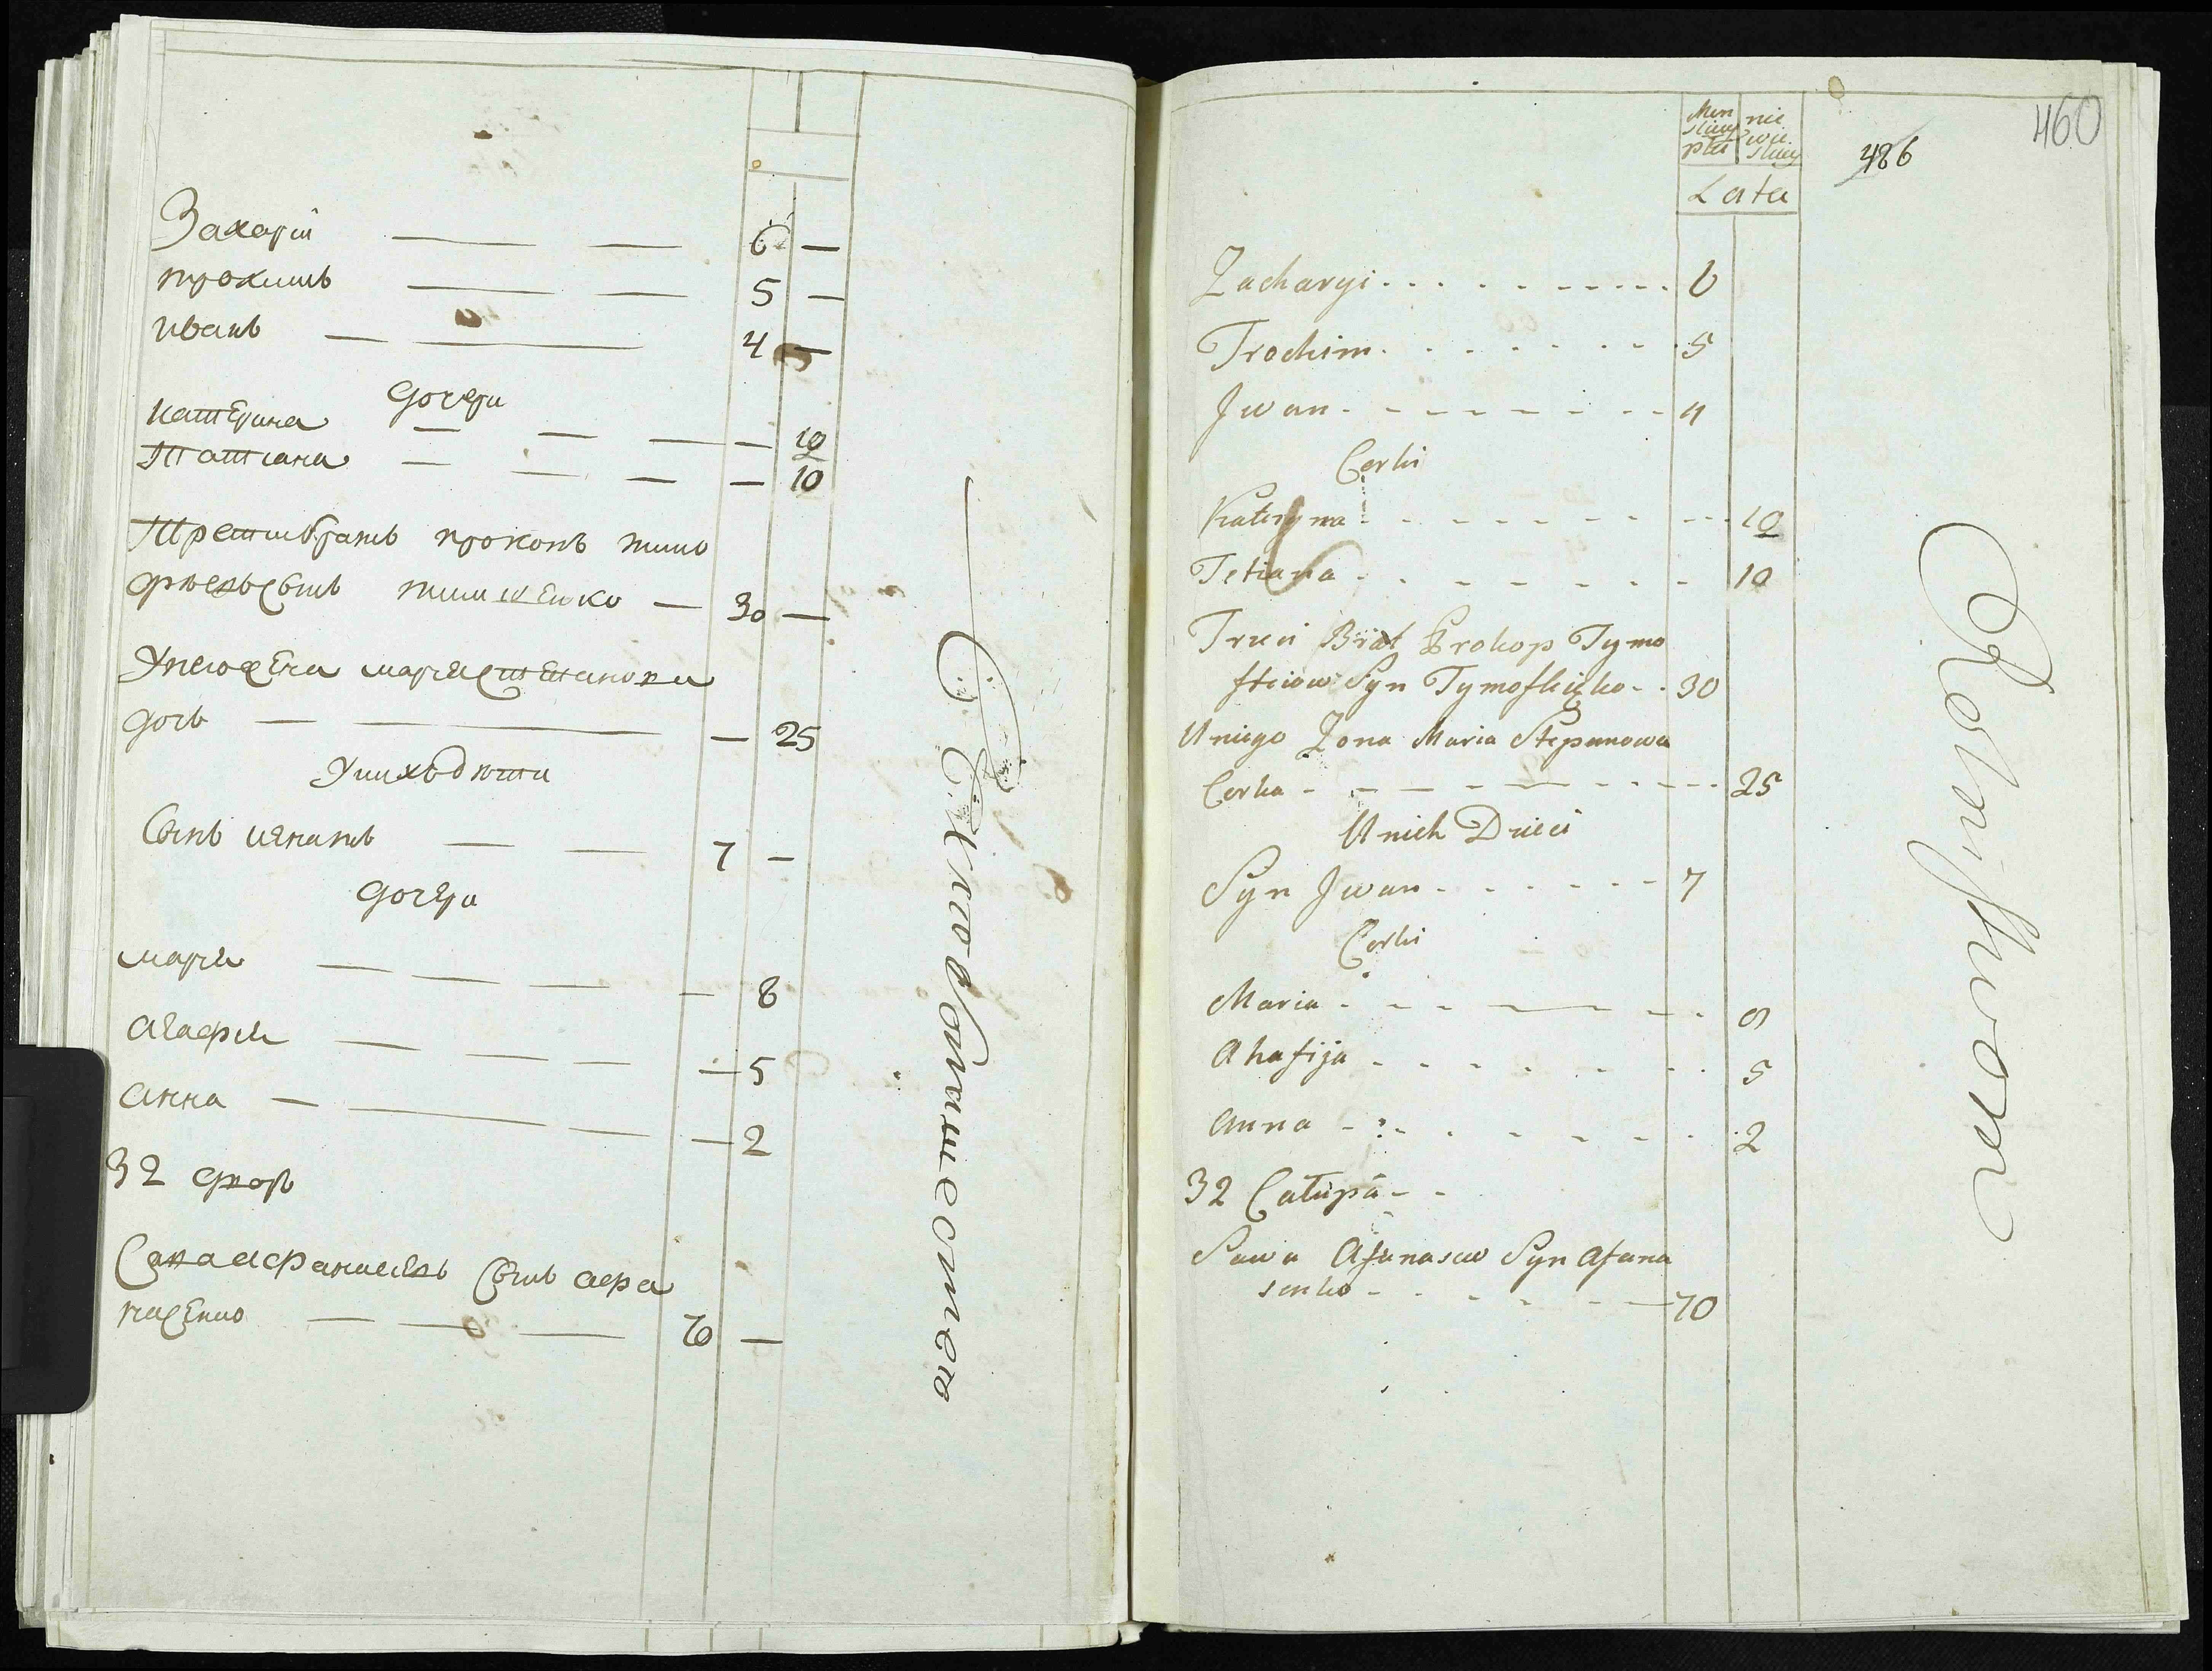 Захарій — — 6 —
трохимъ — — 5 —
иванъ — — 4 —
дочери
катерина — — — — 10
Татіана — — — — 10
Третій братъ прокопъ тимо
фѣевъ сынъ тимошенко — 30 —
У него жена марія степанова
дочь — — — 25
У нихъ дѣти
Сынъ иванъ — — 7 —
дочери
марія — — — — 8
агафія — — — — 5
анна — — — — 2
32 дворъ
Сава афанасіевъ сынъ афа
насенко — — — 70 —
460
486
Lata
Zacharyi 6
Trochim 5
Jwan 4
Corki
Kateryna 10
Tetiana 10
Trzeci Brat Prokop Tymo
ftiow Syn 30
U niego Zona Maria Stepanowa
Corka 25
U nich Dzieci
Syn Jwan 7
Corki
Maria 8
Ahafija 5
Anna 2
32 Całupa
Sawa Afanasiew Syn Afana
senko 70